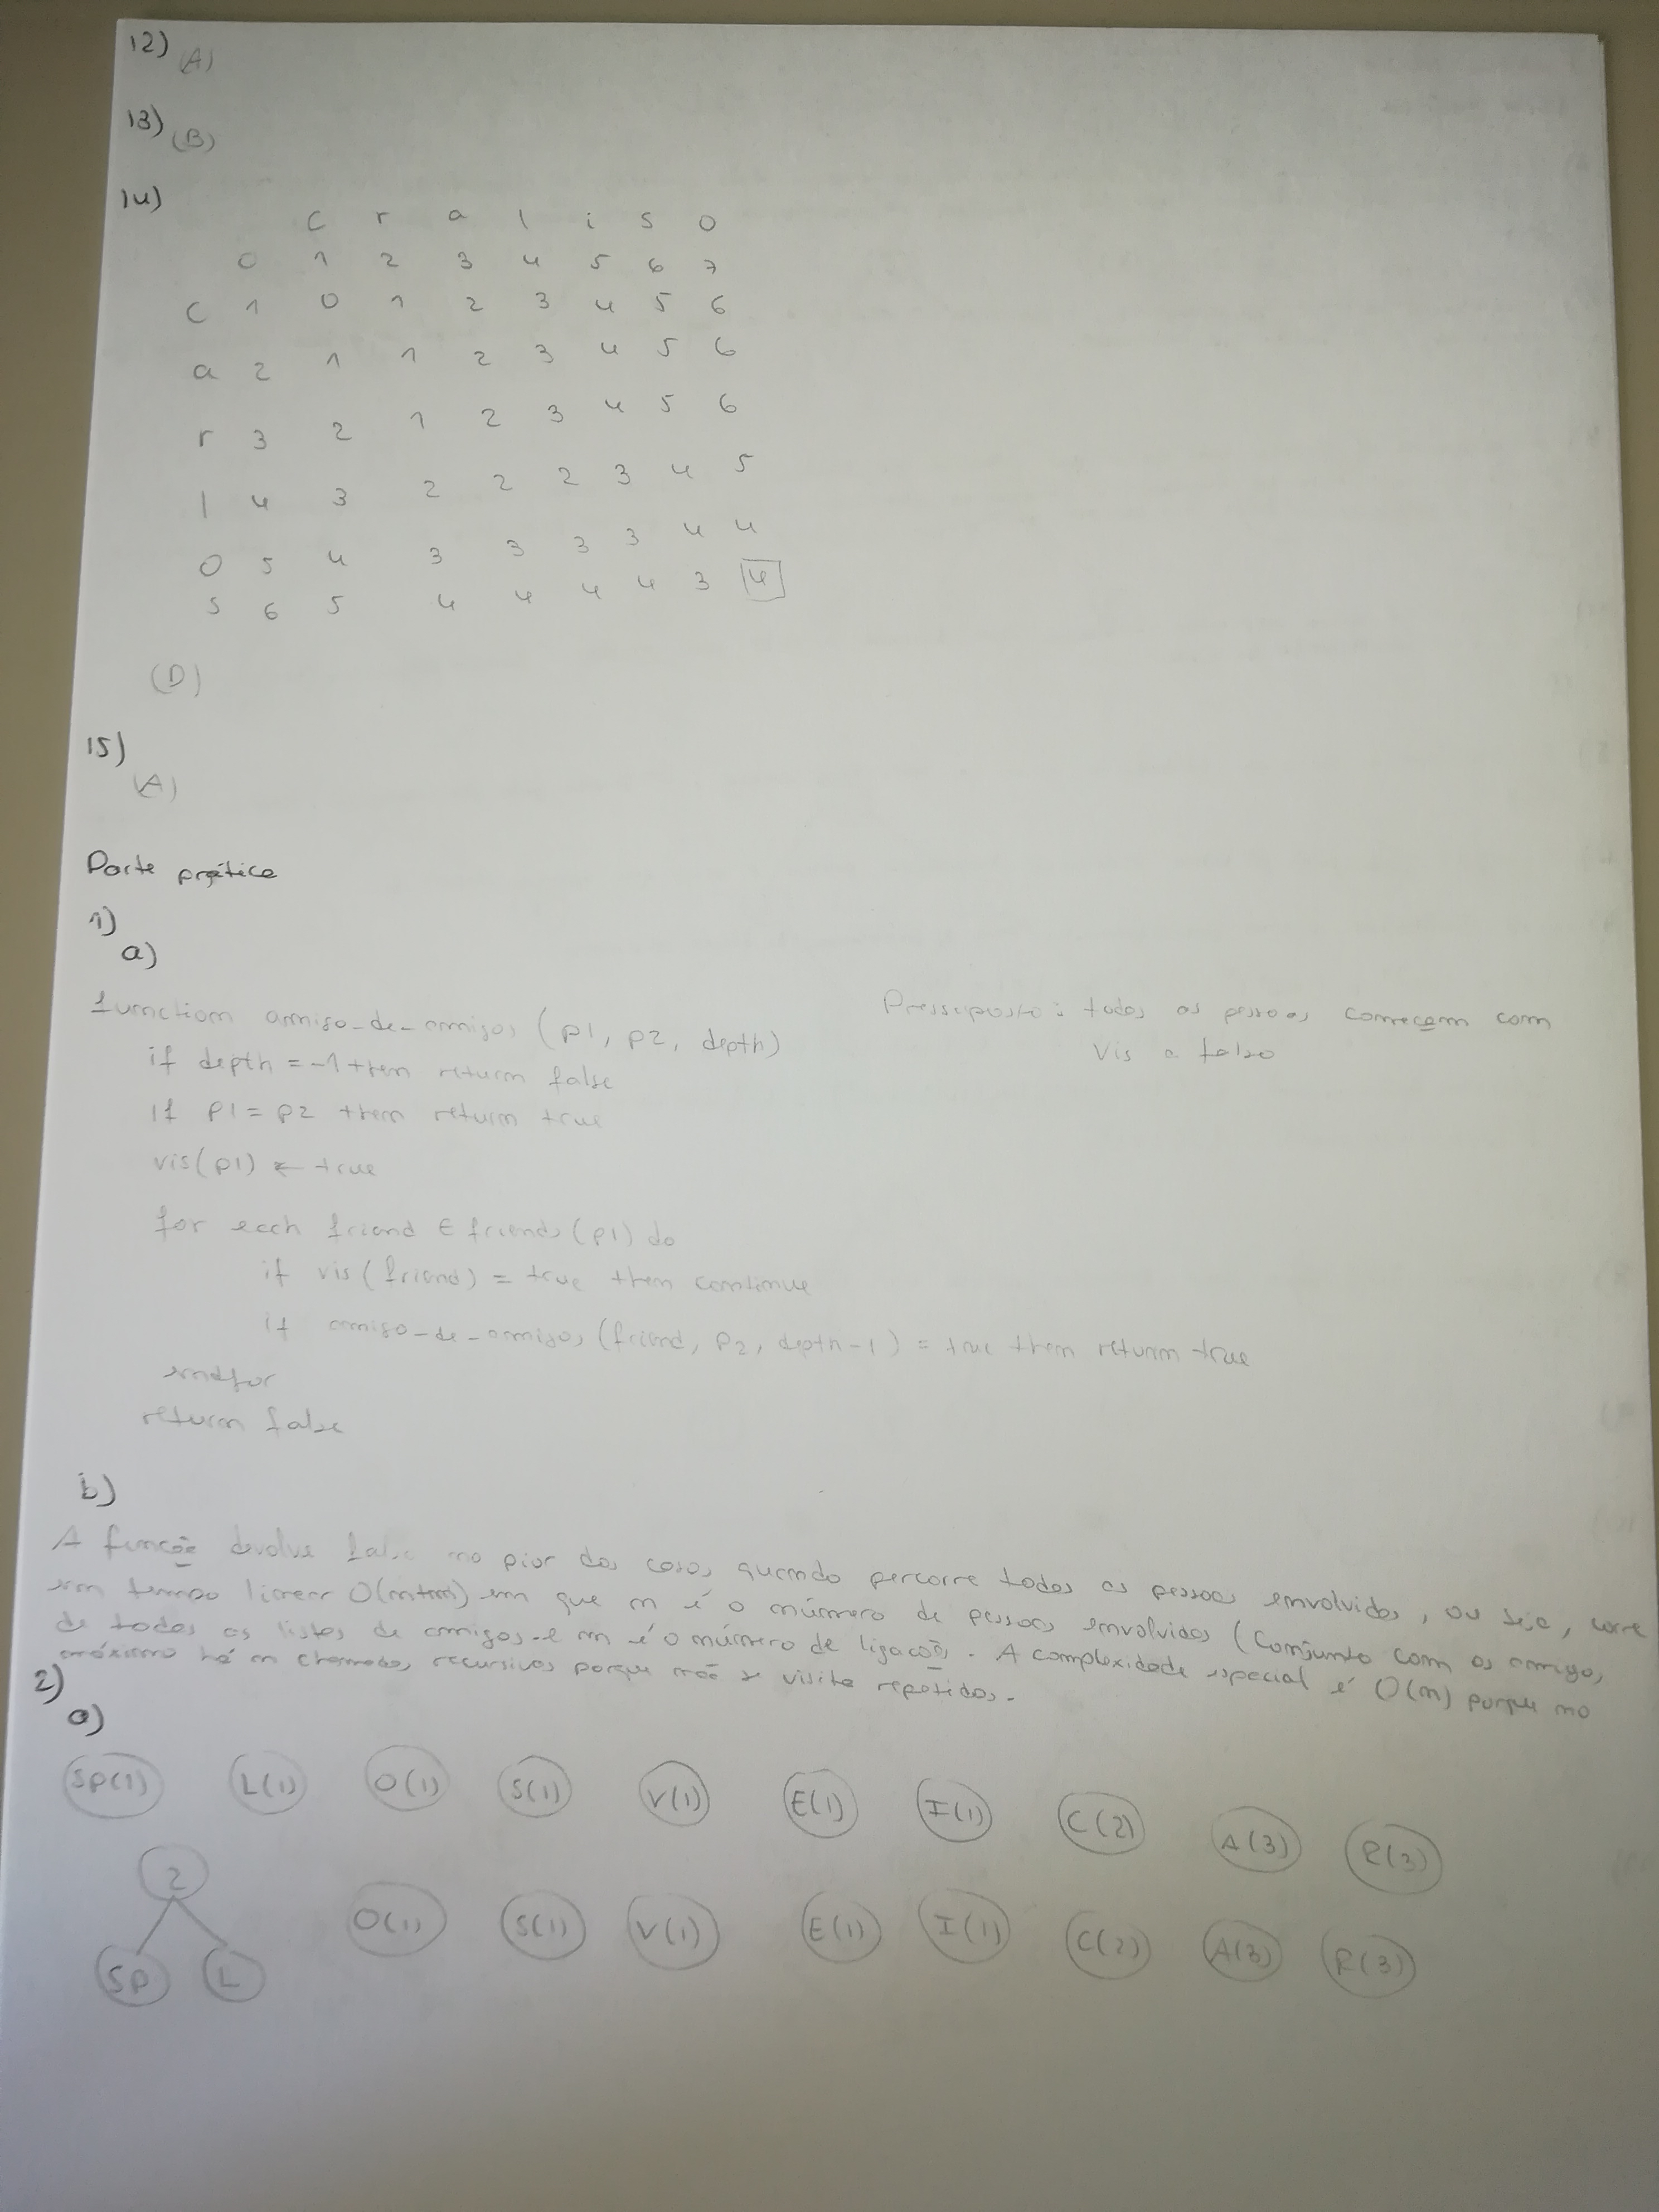 12) (A)
13) (B)
14)
c r a l i s o
0 1 2 3 4 5 6 7
c 1 0 1 2 3 4 5 6
a 2 1 1 2 3 4 5 6
r 3 2 1 2 3 4 5 6
l 4 3 2 2 2 3 4 5
o 5 4 3 3 3 3 4 4
s 6 5 4 4 4 4 3 4
(D)
15)
(A)
Parte prática
1)
a)
function amigo-de-amigos (p1, p2, depth)
Pressuposto: todas as pessoas começam com
vis a falso
if depth = -1 then return false
if p1 = p2 then return true
vis(p1) ← true
for each friend ∈ friends (p1) do
if vis(friend) = true then continue
if amigo-de-amigos (friend, p2, depth-1) = true then return true
endfor
return false
b)
A função devolve falso no pior dos casos, quando percorre todas as pessoas envolvidas, ou seja, corre
em tempo linear O(n+m) em que n é o número de pessoas envolvidas (Conjunto com os amigos
de todas as listas de amigos e m é o número de ligações. A complexidade espacial é O(n) porque no
máximo há n chamadas recursivas porque não se visita repetidos.
2)
a)
SP(1) L(1) O(1) S(1) V(1) E(1) I(1) C(2) A(3) R(3)
2
O(1) S(1) V(1) E(1) I(1) C(2) A(3) R(3)
SP L